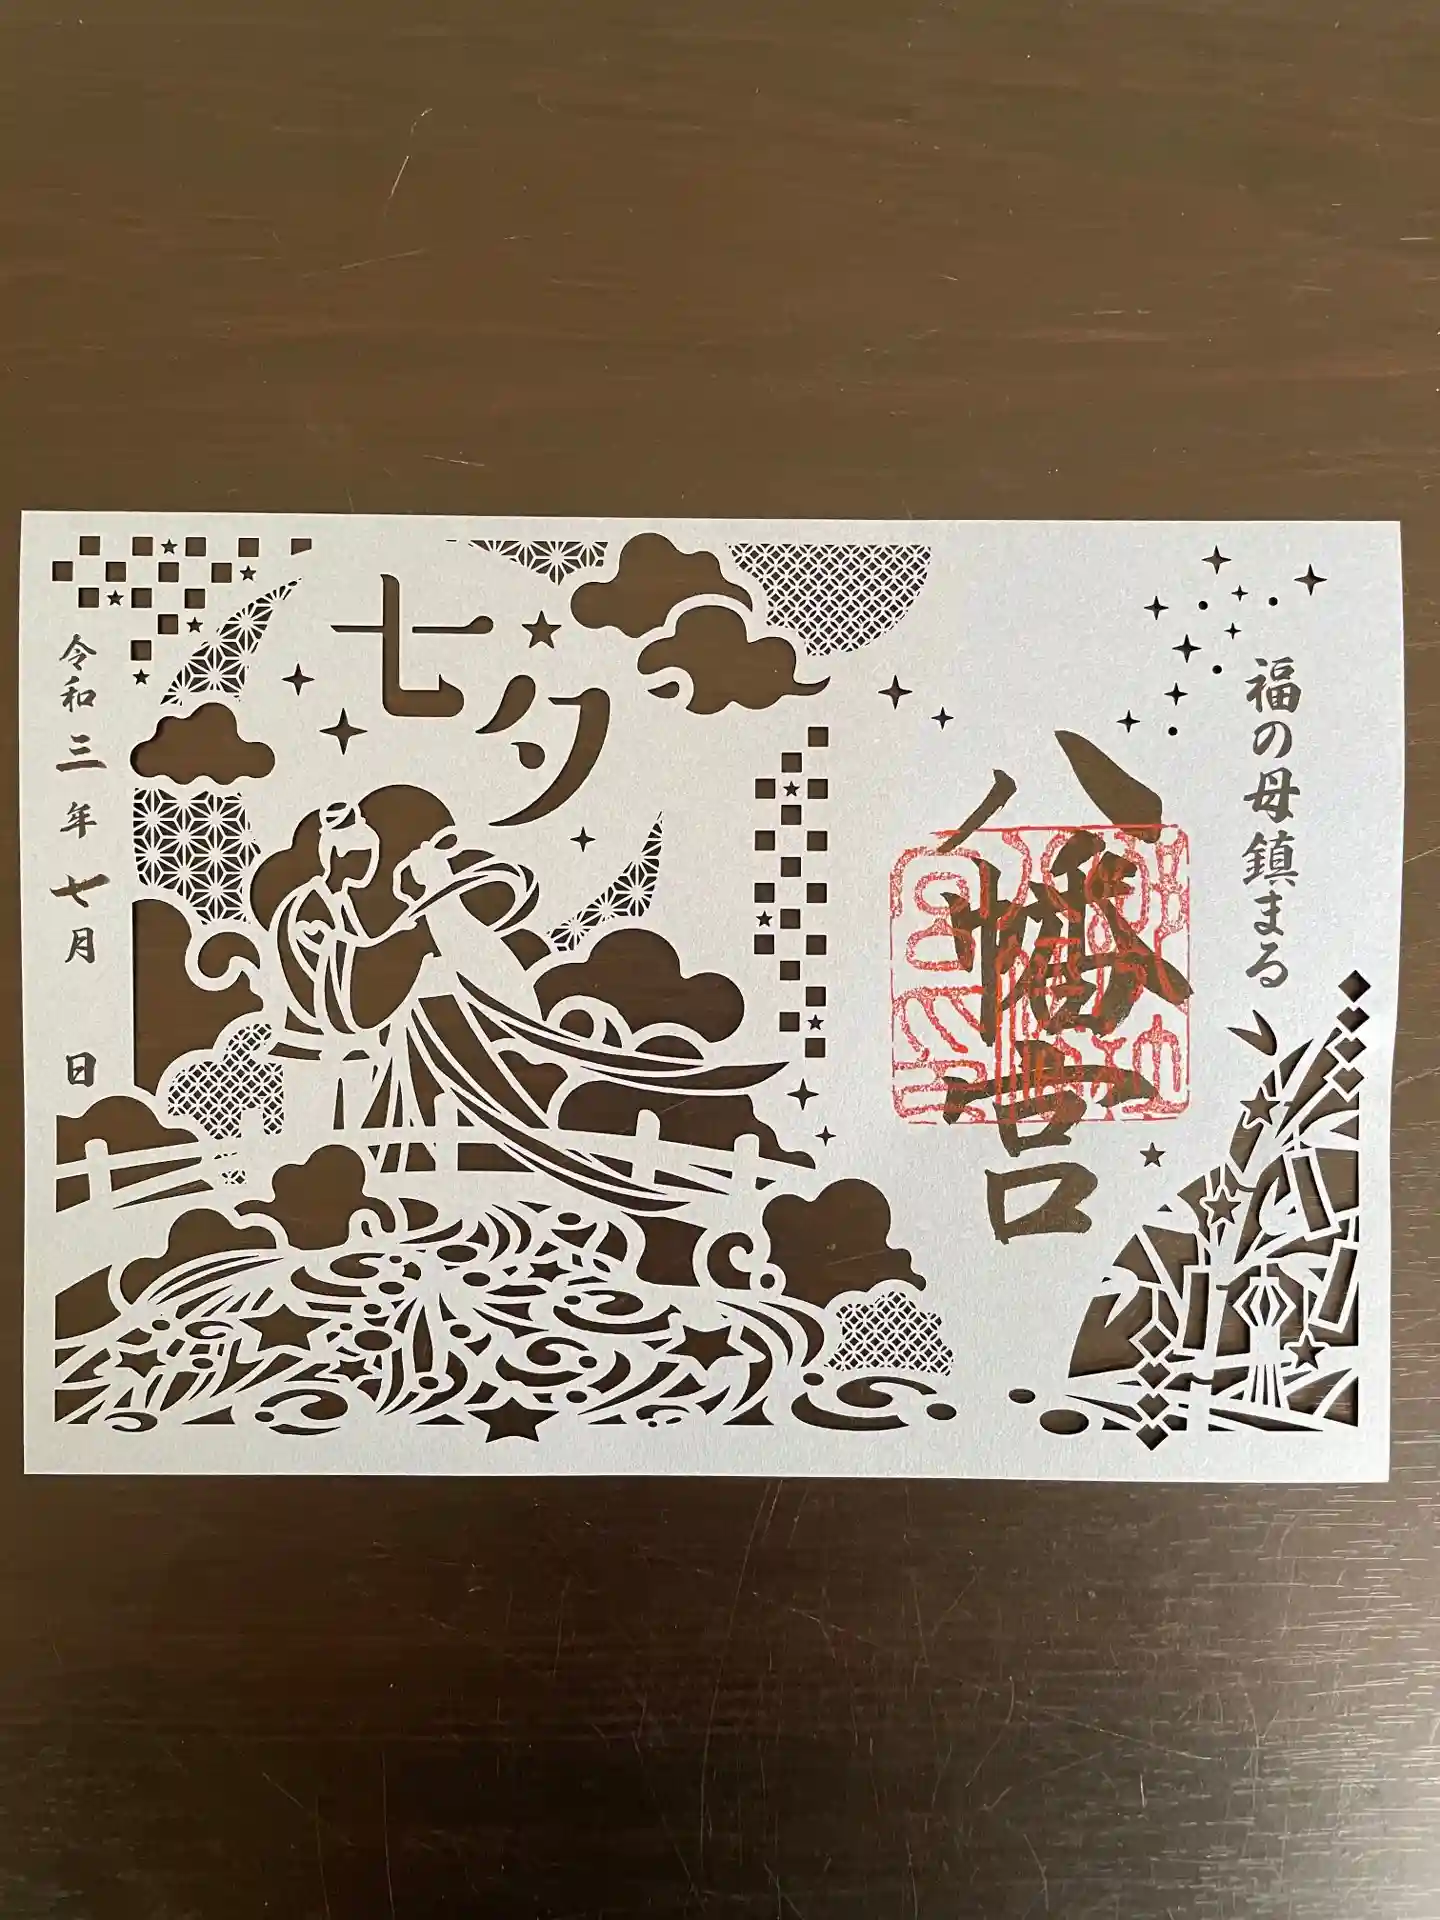 福の母鎮まる
八幡宮
七夕
令和三年七月 日